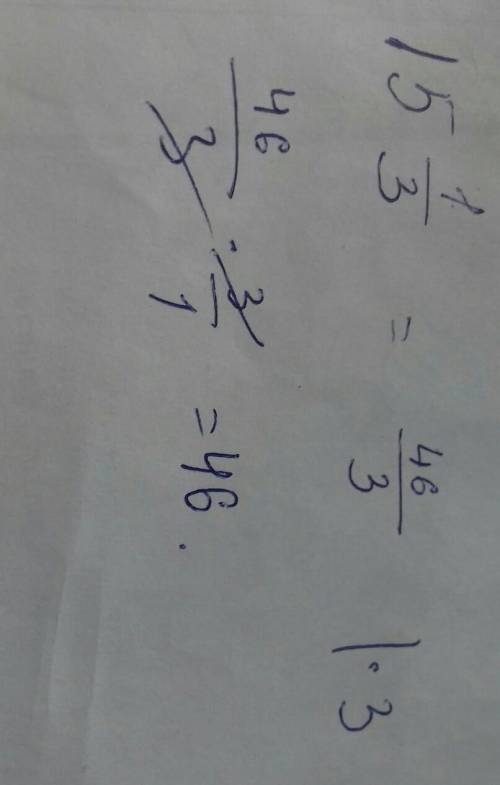 15 1/3 = 46/3 | · 3
46/3 · 3/1 = 46.